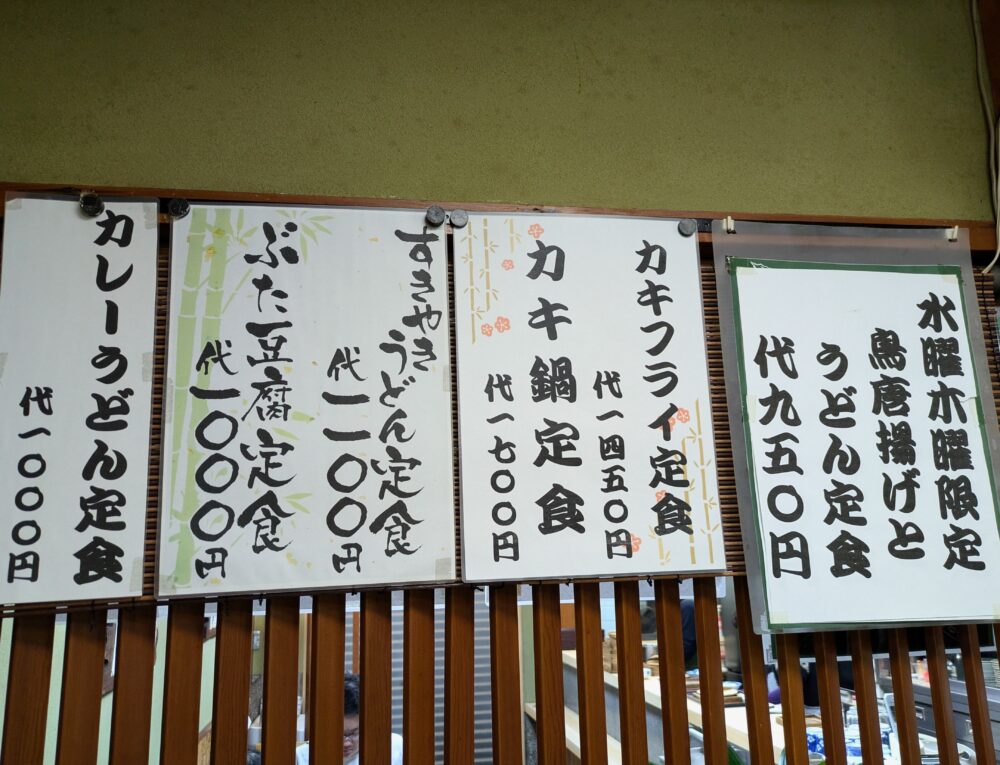 水曜木曜限定
鳥唐揚げと
うどん定食
代九五〇円
カキフライ定食
代一四五〇円
カキ鍋定食
代一七〇〇円
すきやき
うどん定食
代一一〇〇円
ぶた豆腐定食
代一〇〇〇円
カレーうどん定食
代一〇〇〇円